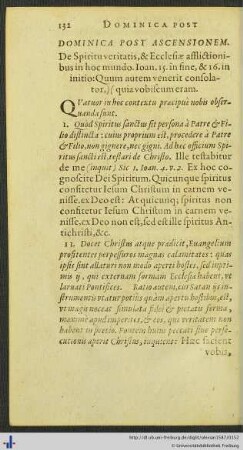 132 DOMINICA POST
DOMINICA POST ASCENSIONEM.
De Spiritu veritatis, & Ecclesiæ afflictioni-
bus in hoc mundo. Ioan. 15. in fine, & 16. in
initio: Quum autem venerit consola-
tor, &c. quia vobiscum eram.
QVatuor in hoc contextu præcipuè nobis obser-
uanda sunt.
1. Quòd Spiritus sanctus sit persona à Patre & Fi-
lio distincta: cuius proprium est, procedere à Patre
& Filio, non gignere, nec gigni. Ad hæc officium Spi-
ritus sancti est, testari de Christo. Ille testabitur
de me (inquit) Sic 1. Ioan. 4. v. 2. Ex hoc co-
gnoscite Dei Spiritum. Quicunque spiritus
confitetur Iesum Christum in carnem ve-
nisse, ex Deo est: At quicunq; spiritus non
confitetur Iesum Christum in carnem ve-
nisse, ex Deo non est, sed est ille spiritus An-
tichristi, &c.
11. Docet Christus atque prædicit, Euangelium
profitentes perpessuros magnas calamitates: quas
ipsis sint allaturi non modò aperti hostes, sed inpri-
mis ij, qui externam formam Ecclesiæ habent, vt
laruati Pontifices. Ratio autem, cur Satan ijs in-
strumentis vtatur potius quàm apertis hostibus, est,
vt magis noceat simulata fides & pietatis forma,
maximè apud imperitos, & eos, qui veritatem non
habent in pretio. Fontem huius peccati siue perse-
cutionis aperit Christus, inquiens: Hæc facient
vobis,
http://dl.ub.uni-freiburg.de/diglit/
© Universitätsbibliothek Freiburg